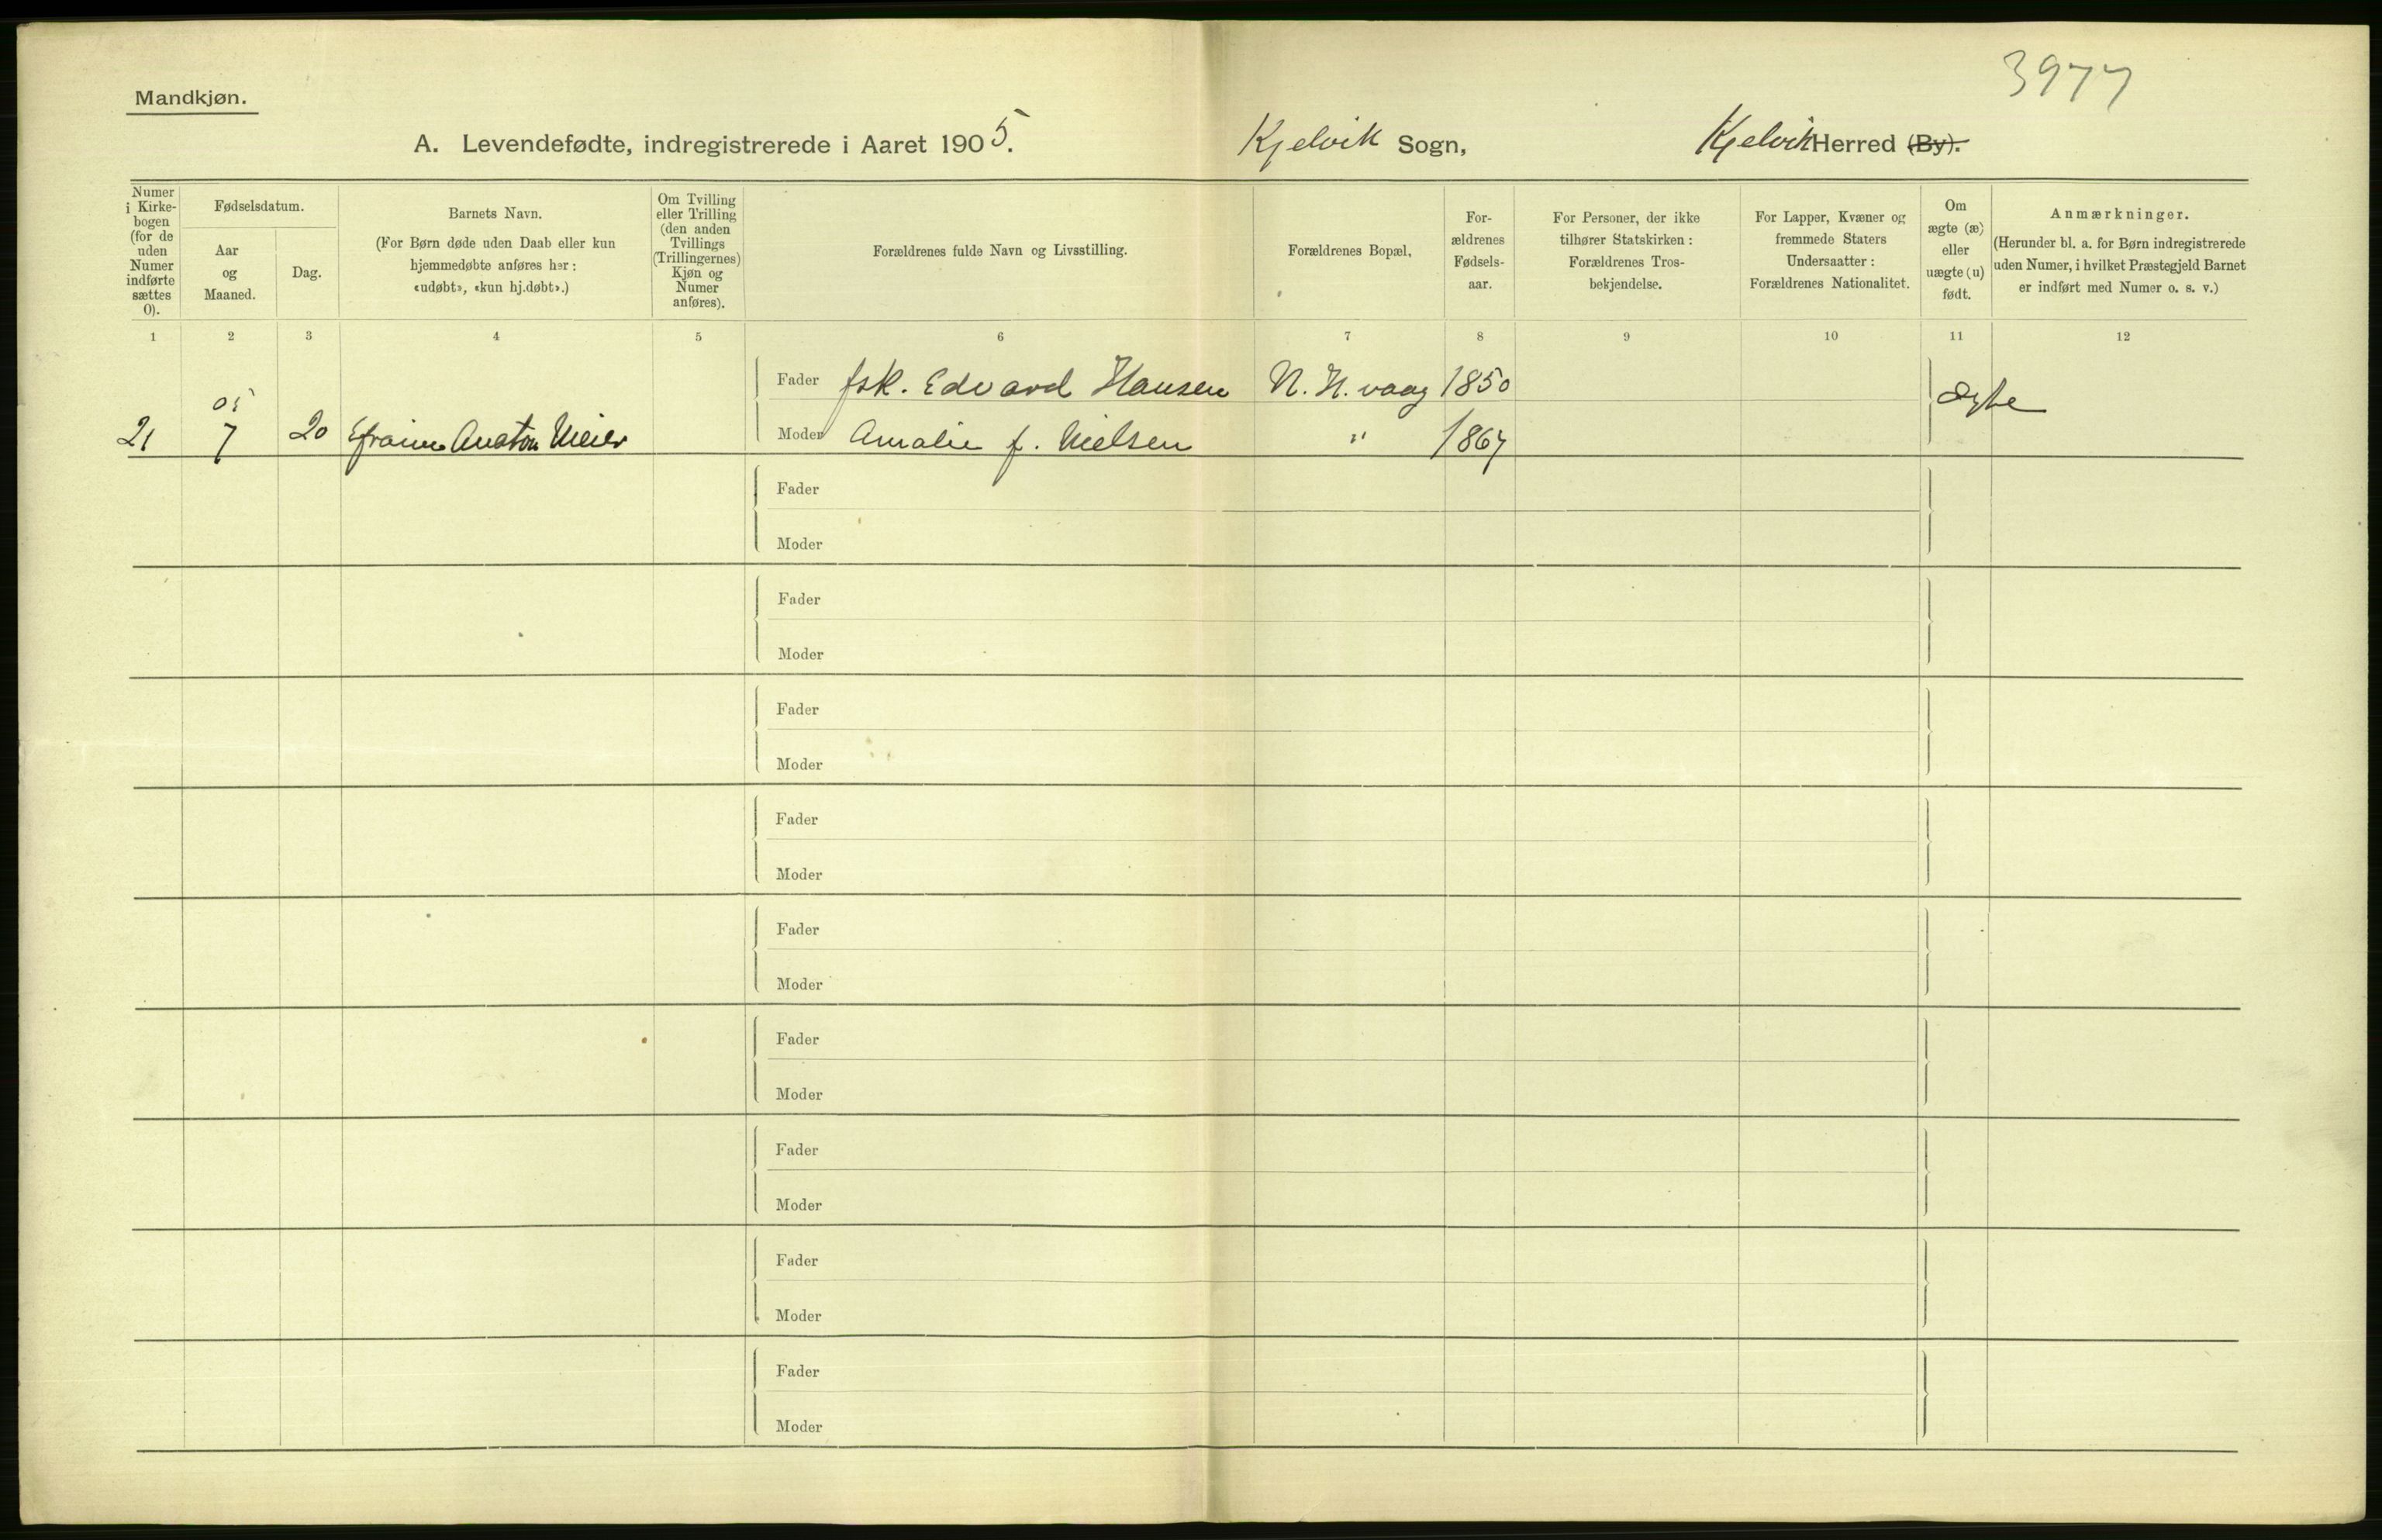 3977
Mandkjøn.
A. Levendefødte, indregistrerede i Aaret 1905. Kjelvik Sogn, Kjelvik Herred (By).
Numer i Kirke- bogen (for de uden Numer indførte sættes 0).
Fødselsdatum.
Aar og Maaned.
Dag.
Barnets Navn.
(For Børn døde uden Daab eller kun
hjemmedøbte anføres her:
«udøbt», «kun hj.døbt».)
Om Tvilling
eller Trilling
(den anden
Tvillings
(Trillingernes)
Kjøn og
Numer
anføres).
Forældrenes fulde Navn og Livsstilling.
Forældrenes Bopæl,
For-
ældrenes
Fødsels-
aar.
For Personer, der ikke
tilhører Statskirken:
Forældrenes Tros-
bekjendelse.
For Lapper, Kvæner og
fremmede Staters
Undersaatter:
Forældrenes Nationalitet.
Om
ægte (æ)
eller
uægte (u)
født.
Anmærkninger.
(Herunder bl. a. for Børn indregistrerede
uden Numer, i hvilket Præstegjeld Barnet
er indført med Numer o. s. v.)
1 2 3 4 5 6 7 8 9 10 11 12
Fader fsk. Edvard Hansen N. H. vaag 1850 Ægte
05
21 7 20 Efraim Anaton Meier Moder Amalie f. Nielsen " 1867
Fader
Moder
Fader
Moder
Fader
Moder
Fader
Moder
Fader
Moder
Fader
Moder
Fader
Moder
Fader
Moder
Fader
Moder